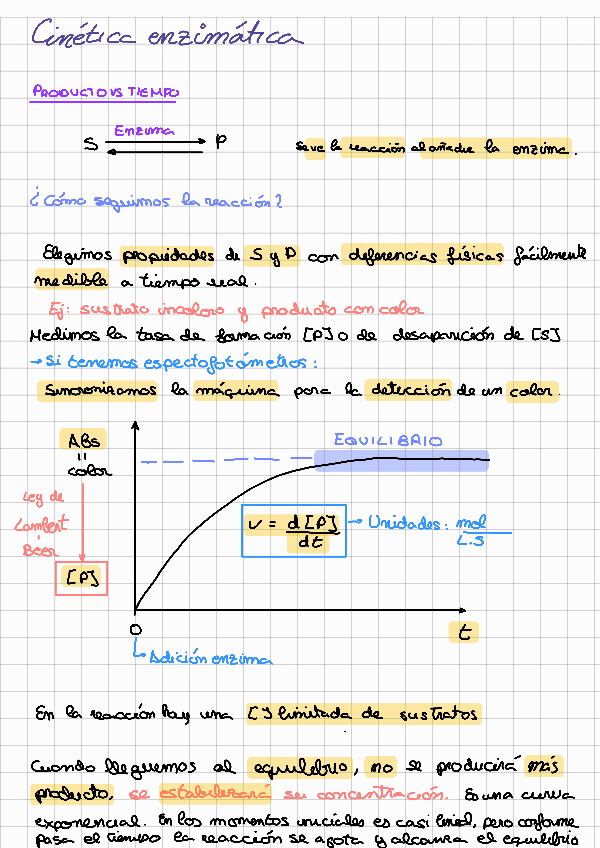 Cinética enzimática
PRODUCTO VS TIEMPO
Enzima
S P
Se ve la reacción al añadir la enzima.
¿Cómo seguimos la reacción?
Elegimos propiedades de S y P con deferencias físicas fácilmente
medible a tiempo real.
Ej: sustrato incoloro y producto con color
Medimos la tasa de formación [P] o de desaparición de [S]
→ Si tenemos espectofotómetros:
Sincronizamos la máquina para la detección de un color.
Abs
=
color
Ley de
Lambert
-
Beer
[P]
EQUILIBRIO
v = d[P]
dt
→ Unidades: mol
L.S
O
t
Adición enzima
En la reacción hay una [] limitada de sustratos
Cuando lleguemos al equilibrio, no se producirá más
producto, se estabilizará su concentración. Es una curva
exponencial. En los momentos iniciales es casi lineal, pero conforme
pasa el tiempo la reacción se agota y alcanza el equilibrio